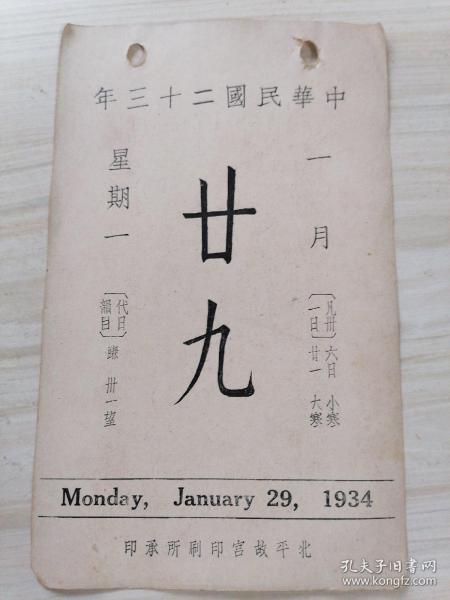 中華民國二十三年
一月
〔凡卅一日〕
六日 小寒
廿一 大寒
廿九
星期一
〔代日韻目〕
卅一望
Monday, January 29, 1934
北平故宮印刷所承印
孔夫子旧书网
www.kongfz.com